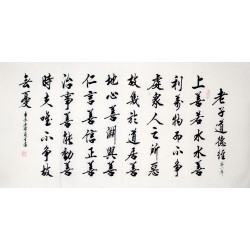 老子道德經
上善若水水善
利萬物而不爭
處衆人之所惡
故幾於道居善
地心善淵與善
仁言善信正善
治事善能動善
時夫唯不爭故
無憂